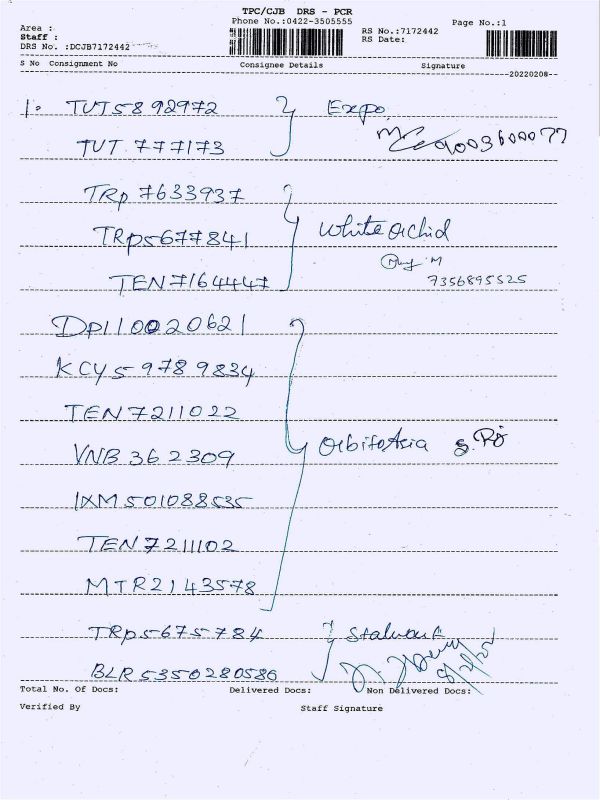 TPC/CJB DRS - PCR
Phone No.:0422-3505555
Page No.:1
Area :
Staff :
DRS No. :DCJB7172442
RS No.:7172442
RS Date:
S No Consignment No Consignee Details Signature
20220208
1. TUT58 92972 Expo
TUT 777173
TRP 7633937
TRP5677841 White orchid
TEN7164447 7356895525
DPI10020621
KCY5 9789834
TEN 7211022
VNB 362309 OrbitoAsia
IXM501088535
TEN7211102
MTR2143578
TRP5675784 Stalwart
BLR5350280586
Total No. Of Docs: Delivered Docs: Non Delivered Docs:
Verified By Staff Signature